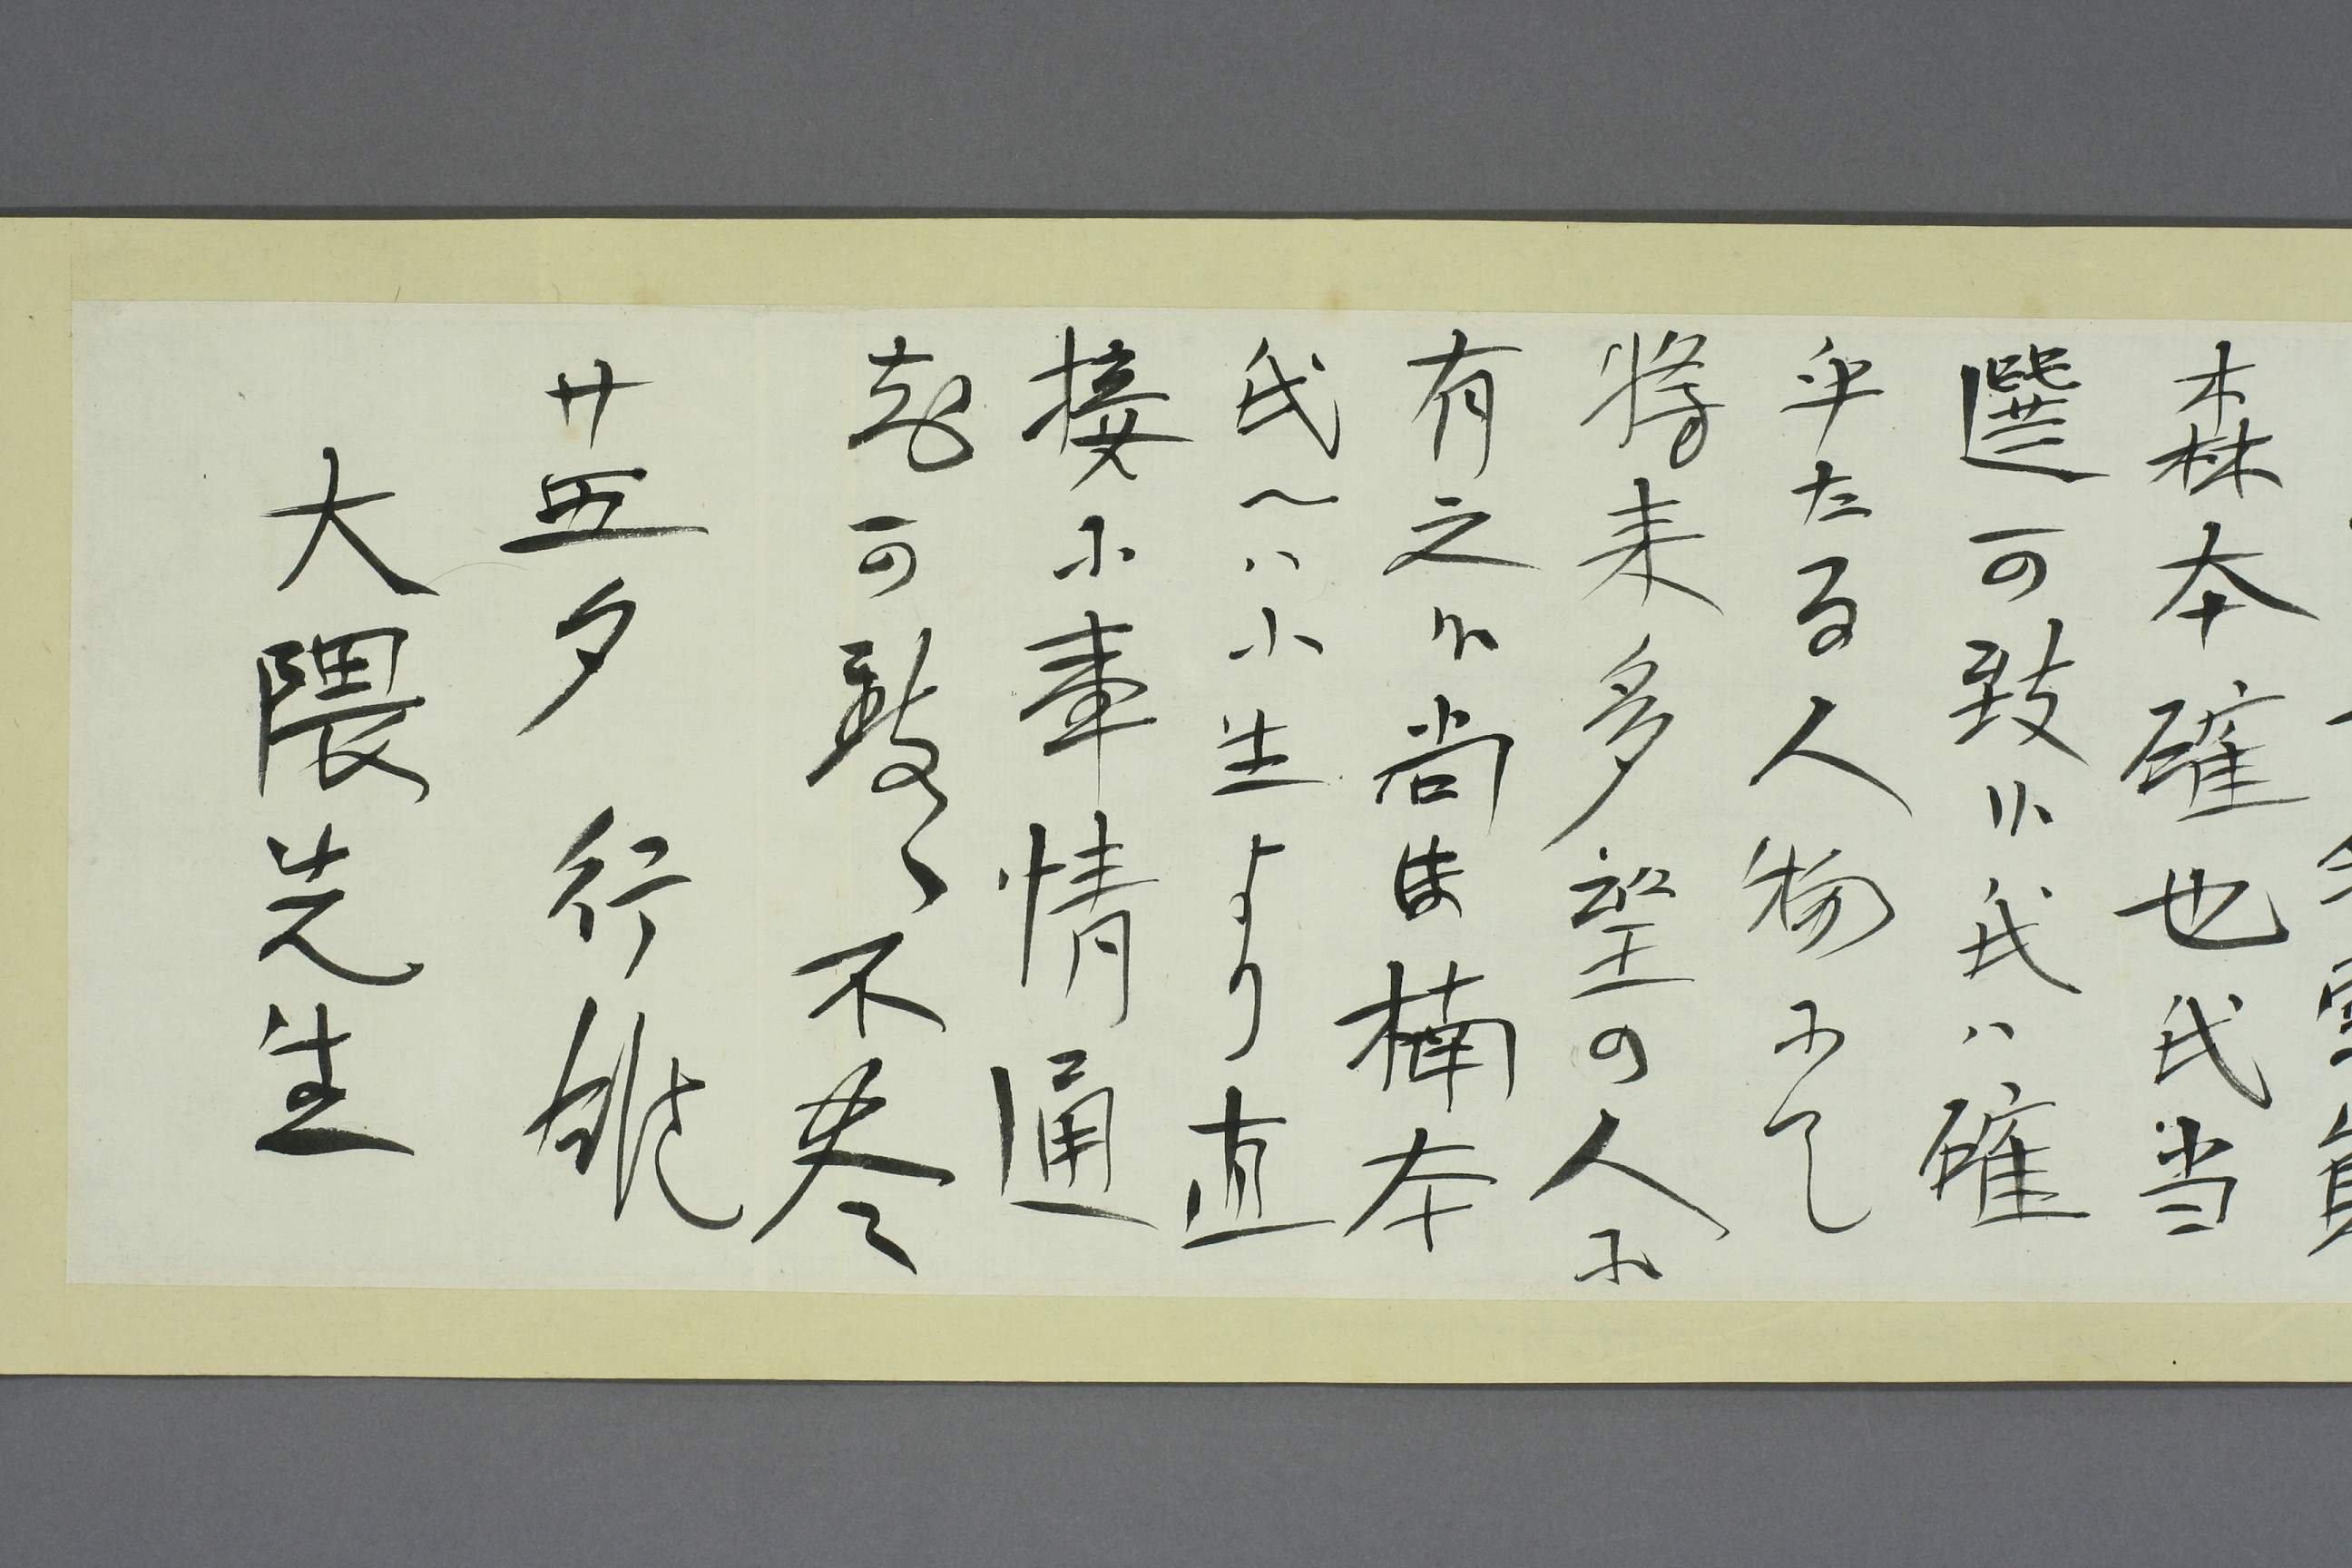 森本確也氏当
選可致候氏ハ確
乎たる人物にして
将来多望の人に
有之候尚ほ楠本
氏へハ小生より直
接に事情通
報可致候不尽
廿五夕 行雄
大隈先生